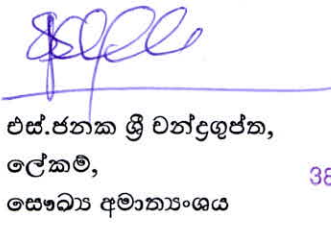 එස්.ජනක ශ්‍රී චන්ද්‍රගුප්ත,
ලේකම්,
38
සෞඛ්‍ය අමාත්‍යංශය